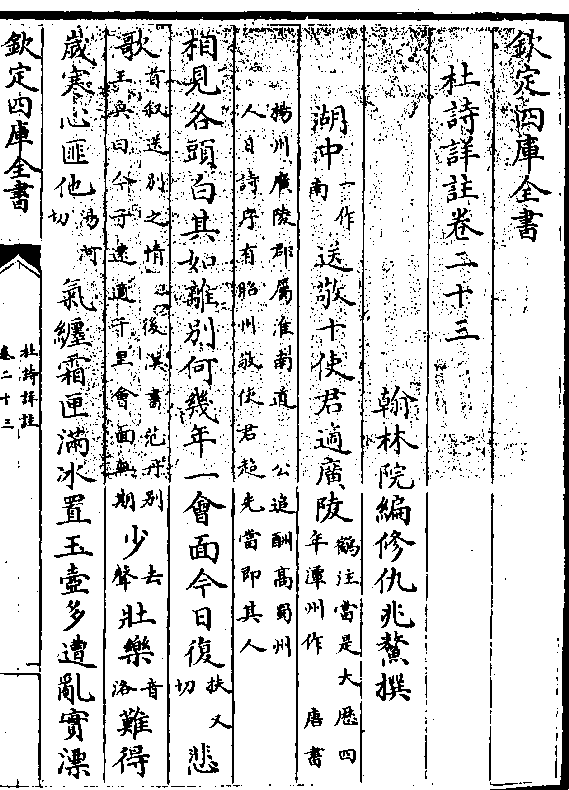 欽定四庫全書
杜詩詳註卷二十三
翰林院編修仇兆鰲撰
湖中一作南送敬十使君適廣陵鶴注當是大厯四年潭州作 唐書
揚州廣陵郡屬淮南道 公追酬高蜀州
人日詩序有昭州敬使君超先當即其人
相見各頭白其如離別何幾年一會面今日復扶又切悲
歌首叙送別之情 後漢書范丹別王奐曰今子遠適千里會面無期少去聲壯樂音洛難得
歲寒心匪他湯河切氣纏霜匣滿冰置玉壺多遭亂實漂
欽定四庫全書
杜詩詳註
卷二十三